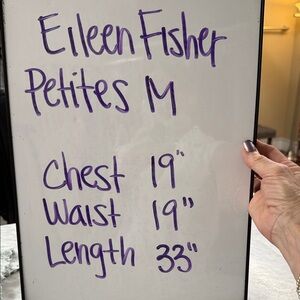 Eileen Fisher
Petites M
Chest 19"
Waist 19"
Length 33"